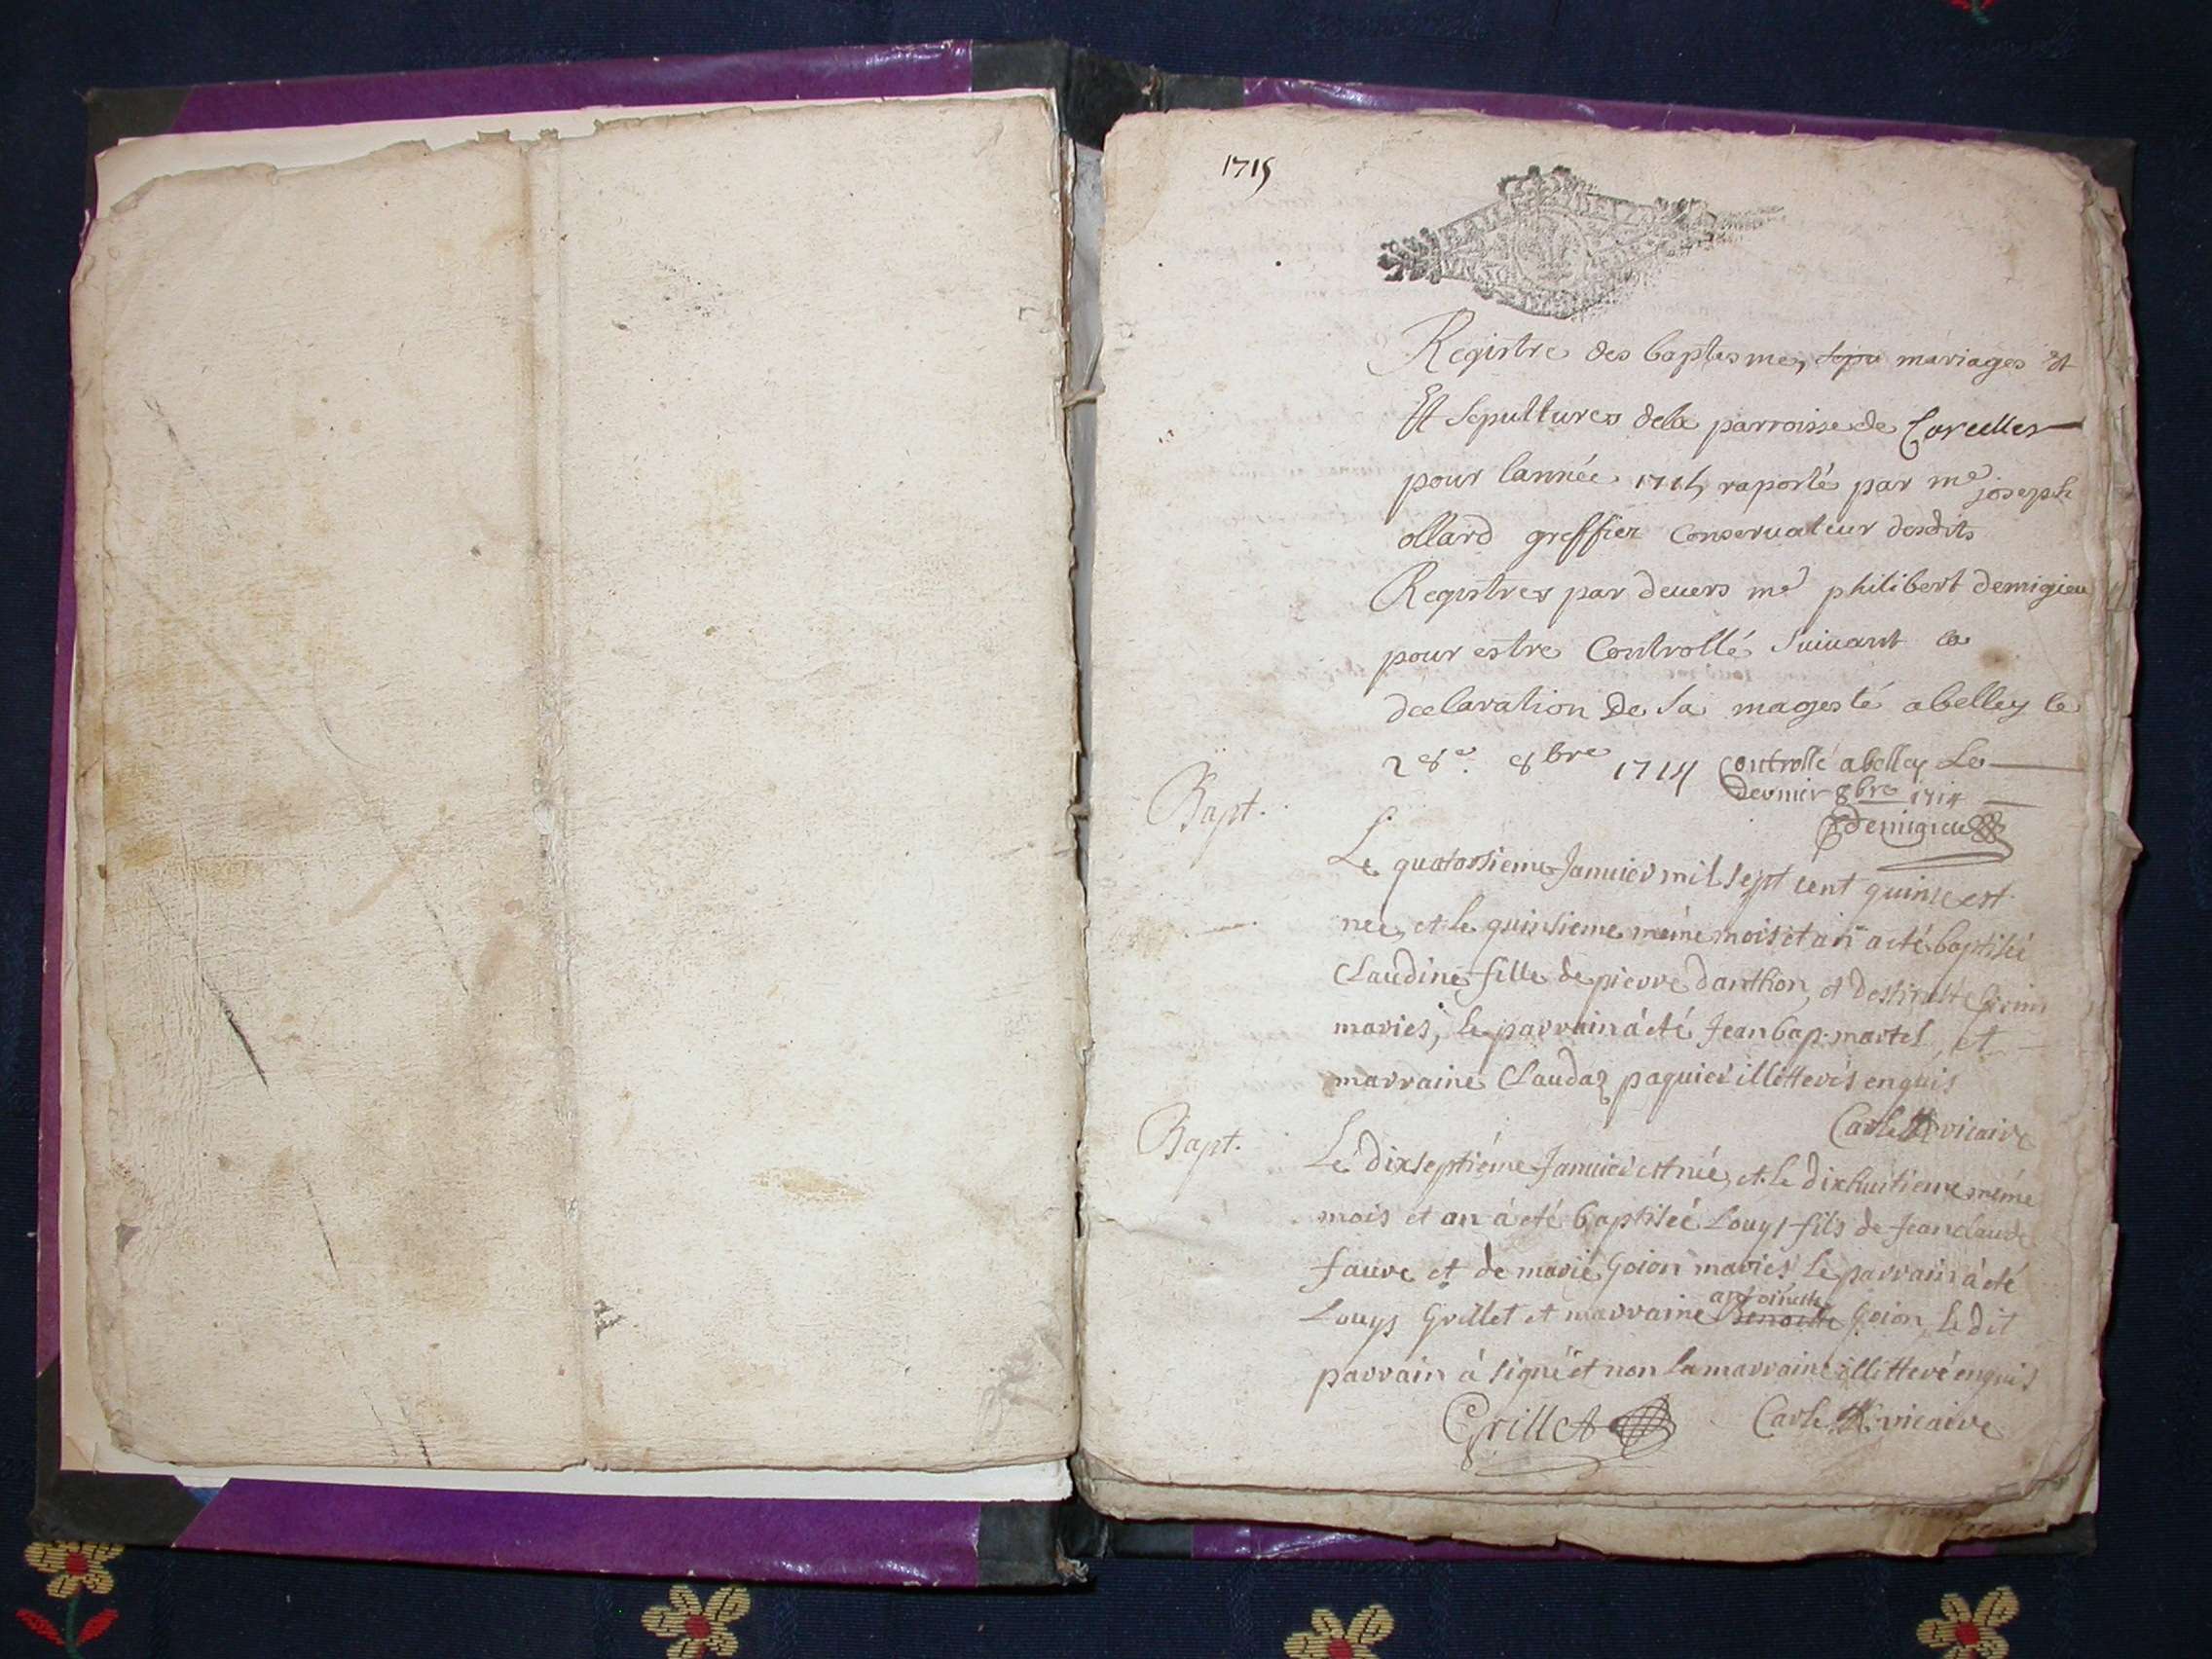 1715
Registre des baptesmes, sepu mariages et
Et sepultures dela parroisse de Corcelles
pour lannée 1715 raporté par me joseph
ollard greffier Conservateur desdits
Registres par devers me philibert demigieu
pour estre Controllé suivant la
declaration de sa magesté abelley le
28e. 8bre 1714 Controllé abelley Le
dernier 8bre 1714
demigieu
Bapt.
Le quatorsieme Janvier mil sept cent quinse est
nee, et le quinsieme même mois et an a eté baptisée
Claudine fille de pierre danthon, et
mariés, le parrain à eté Jean bap. martel, et
marraine Claudaz paquier illitterés enquis
Carle vicaire
Bapt.
Le dixseptiéme Janvier est née, et le dixhuitieme même
mois et an à eté baptiseé Louys fils de Jean claude
faure et de marie Goion mariés le parrain à eté
Louys Grillet et marraine Benoitte antoinette Goion, le dit
parrain à signé et non la marraine illitteré enquis
Grillet Carle vicaire